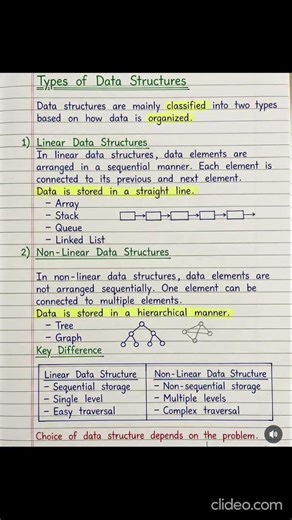 Types of Data Structures
Data structures are mainly classified into two types
based on how data is organized.
1) Linear Data Structures
In linear data structures, data elements are
arranged in a sequential manner. Each element is
connected to its previous and next element.
Data is stored in a straight line.
- Array
- Stack
- Queue
- Linked List
2) Non-Linear Data Structures
In non-linear data structures, data elements are
not arranged sequentially. One element can be
connected to multiple elements.
Data is stored in a hierarchical manner.
- Tree
- Graph
Key Difference
Linear Data Structure
- Sequential storage
- Single level
- Easy traversal
Non-Linear Data Structure
- Non-sequential storage
- Multiple levels
- Complex traversal
Choice of data structure depends on the problem.
clideo.com